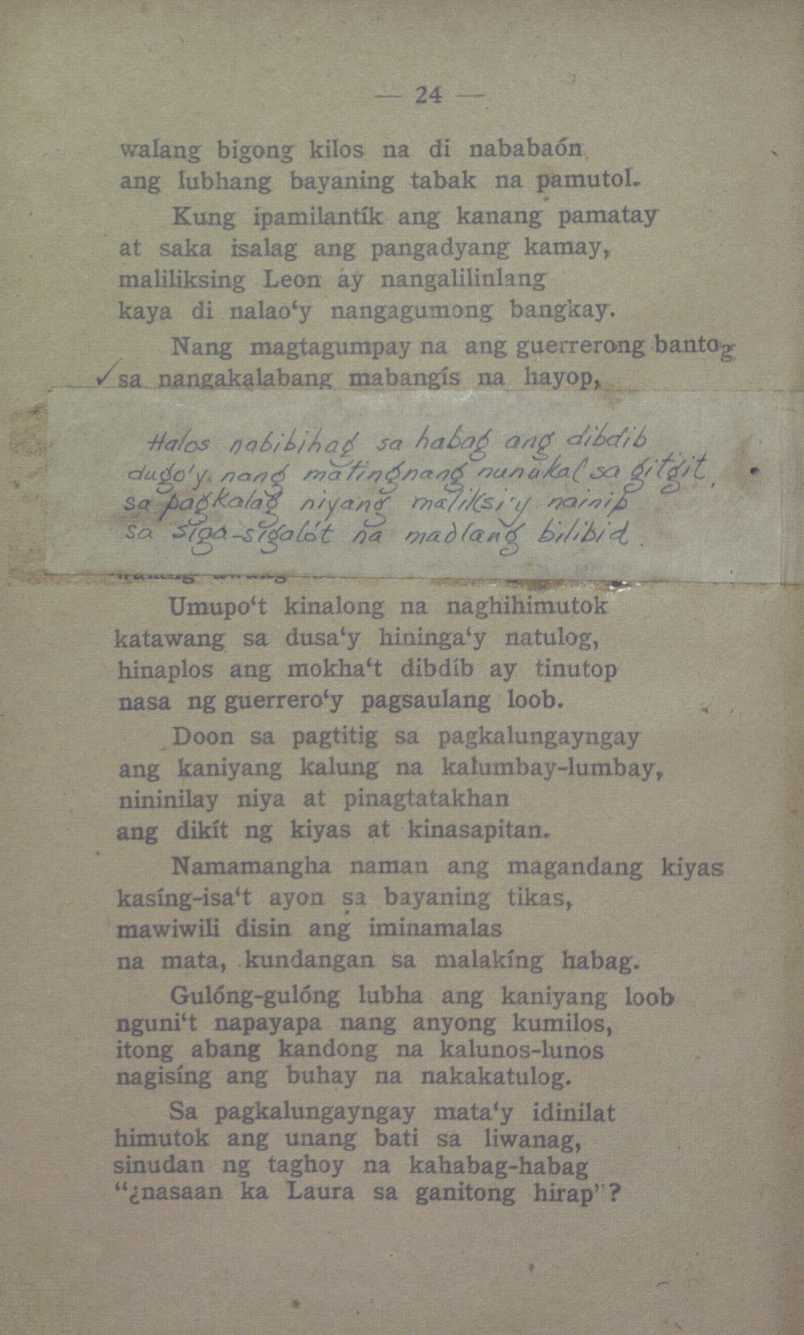 — 24 —
walang bigong kilos na di nababaón
ang lubhang bayaning tabak na pamutol.
Kung ipamilantík ang kanang pamatay
at saka isalag ang pangadyang kamay,
maliliksing Leon ay nangalilinlang
kaya di nalao‘y nangagumong bangkay.
Nang magtagumpay na ang guerrerong bantog
✓sa nangakalabang mabangís na hayop,
Halos nabibihag sa habag ang dibdib
dugo'y nang matingnang nunukal sa gitgit,
sa pagkalag niyang maliksi'y nainip
sa siga-sigalót na madlang bilibid.
Umupo‘t kinalong na naghihimutok
katawang sa dusa‘y hininga‘y natulog,
hinaplos ang mokha‘t dibdíb ay tinutop
nasa ng guerrero‘y pagsaulang loob.
Doon sa pagtitig sa pagkalungayngay
ang kaniyang kalung na kalumbay-lumbay,
nininilay niya at pinagtatakhan
ang dikít ng kiyas at kinasapitan.
Namamangha naman ang magandang kiyas
kasíng-isa‘t ayon sa bayaning tikas,
mawiwili disin ang iminamalas
na mata, kundangan sa malakíng habag.
Gulóng-gulóng lubha ang kaniyang loob
nguni‘t napayapa nang anyong kumilos,
itong abang kandong na kalunos-lunos
nagisíng ang buhay na nakakatulog.
Sa pagkalungayngay mata‘y idinilat
himutok ang unang bati sa liwanag,
sinudan ng taghoy na kahabag-habag
“¿nasaan ka Laura sa ganitong hirap”?